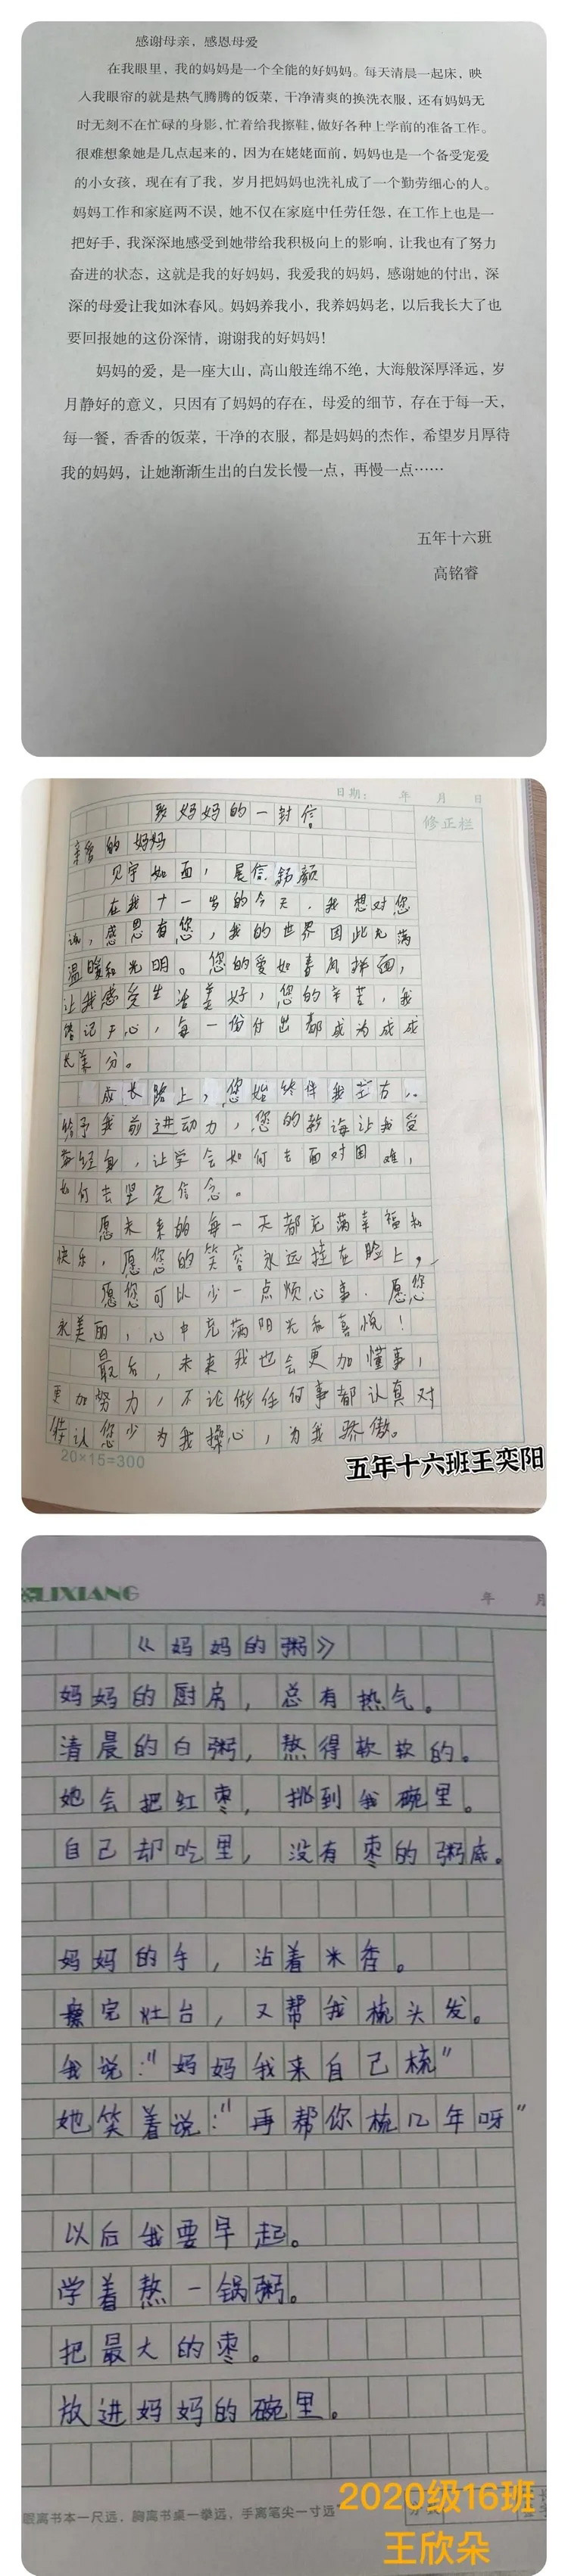 感谢母亲，感恩母爱
在我眼里，我的妈妈是一个全能的好妈妈。每天清晨一起床，映
入我眼帘的就是热气腾腾的饭菜，干净清爽的换洗衣服，还有妈妈无
时无刻不在忙碌的身影，忙着给我擦鞋，做好各种上学前的准备工作。
很难想象她是几点起来的，因为在姥姥面前，妈妈也是一个备受宠爱
的小女孩，现在有了我，岁月把妈妈也洗礼成了一个勤劳细心的人。
妈妈工作和家庭两不误，她不仅在家庭中任劳任怨，在工作上也是一
把好手，我深深地感受到她带给我积极向上的影响，让我也有了努力
奋进的状态，这就是我的好妈妈，我爱我的妈妈，感谢她的付出，深
深的母爱让我如沐春风。妈妈养我小，我养妈妈老，以后我长大了也
要回报她的这份深情，谢谢我的好妈妈！
妈妈的爱，是一座大山，高山般连绵不绝，大海般深厚泽远，岁
月静好的意义，只因有了妈妈的存在，母爱的细节，存在于每一天，
每一餐，香香的饭菜，干净的衣服，都是妈妈的杰作，希望岁月厚待
我的妈妈，让她渐渐生出的白发长慢一点，再慢一点……
五年十六班
高铭睿
日期： 年 月 日
修正栏
致妈妈的一封信
亲爱的妈妈
见字如面，展信舒颜
在我十一岁的今天，我想对您
说，感恩有您，我的世界因此充满
温暖和光明。您的爱如春风拂面，
让我感受生活美好，您的辛苦，我
铭记于心，每一份付出都成为成成
长养分。
成长路上，您始终伴我左右，
给予我前进动力，您的教诲让我受
益终身，让学会如何去面对困难，
如何去坚定信念。
愿未来的每一天都充满幸福和
快乐，愿您的笑容永远挂在脸上，
愿您可以少一点烦心事，愿您
永美丽，心中充满阳光和喜悦！
最后，未来我也会更加懂事，
更加努力，不论做任何事都认真对
待让您少为我操心，为我骄傲。
20×15=300
五年十六班王奕阳
LIXIANG
年 月
《妈妈的粥》
妈妈的厨房，总有热气。
清晨的白粥，熬得软软的。
她会把红枣，挑到我碗里。
自己却吃里，没有枣的粥底。
妈妈的手，沾着米香。
擦完灶台，又帮我梳头发。
我说："妈妈我来自己梳"
她笑着说："再帮你梳几年呀"
以后我要早起。
学着熬一锅粥。
把最大的枣。
放进妈妈的碗里。
眼离书本一尺远，胸离书桌一拳远，手离笔尖一寸远
2020级16班
王欣朵